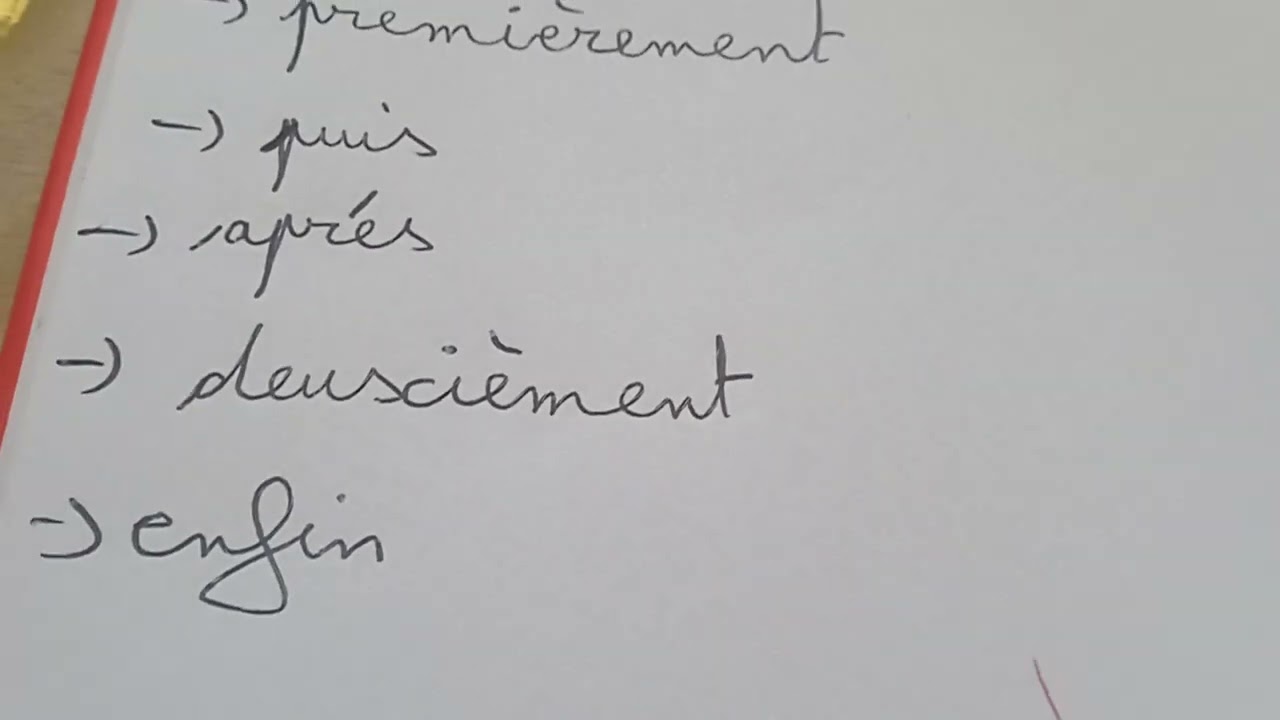 → premièrement
→ puis
→ aprés
→ deuscièment
→ enfin